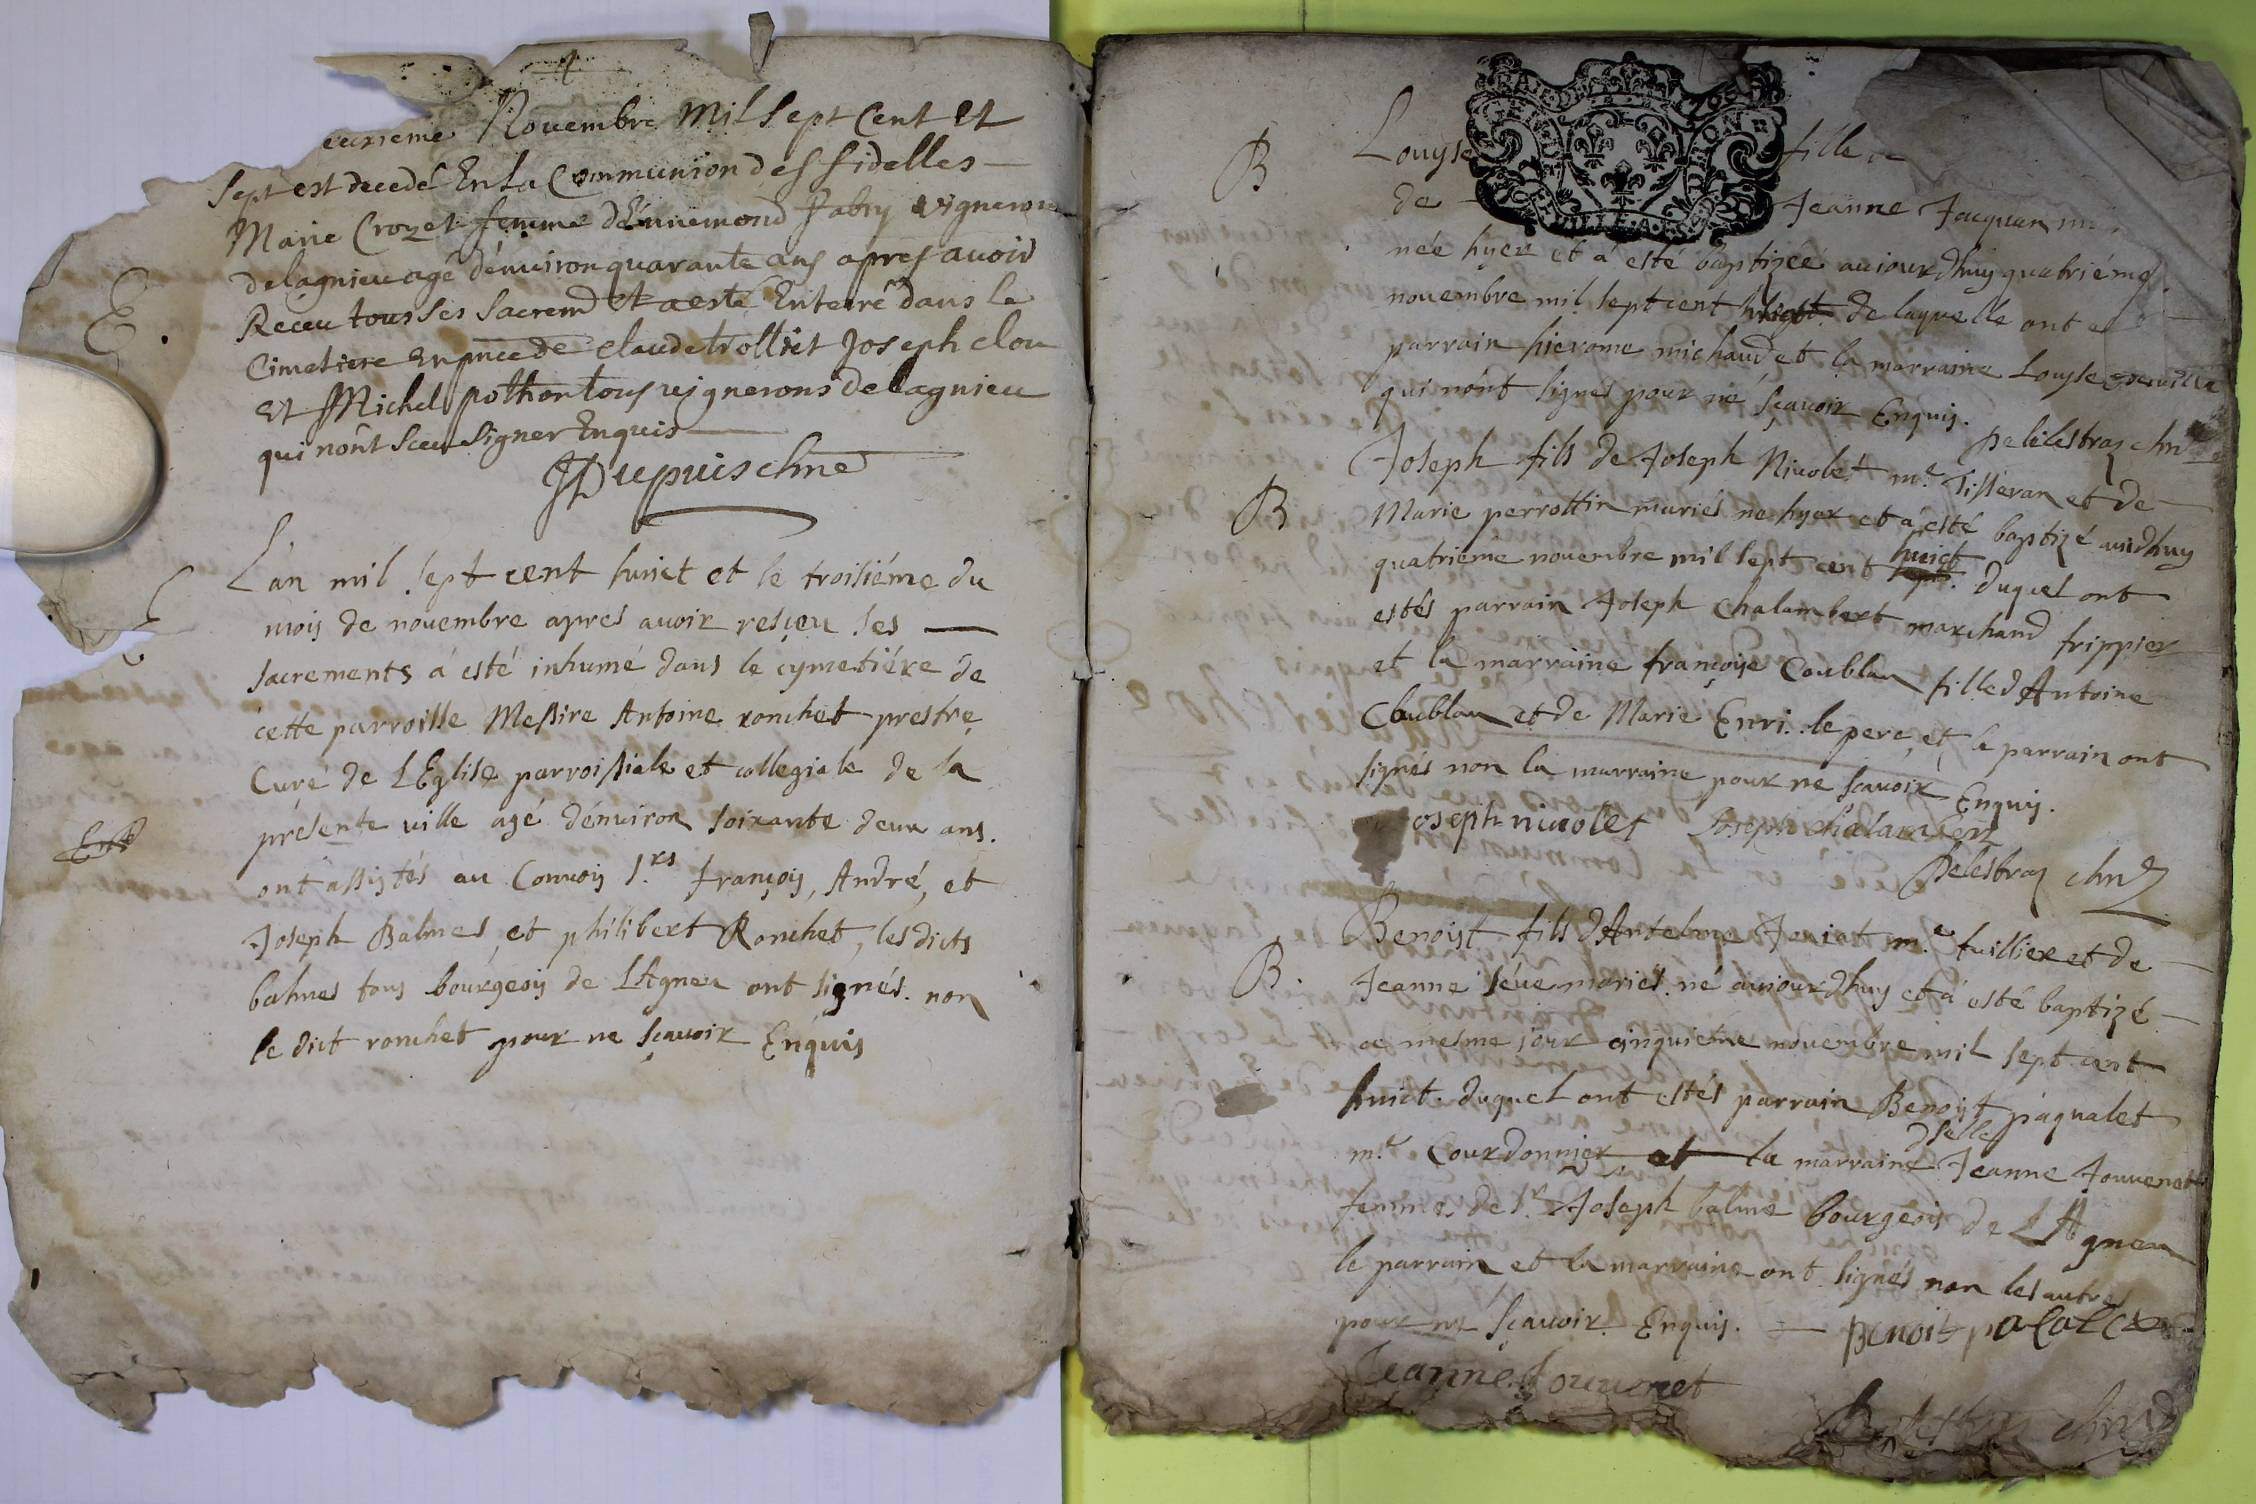 Novembre Mil Sept Cent Et
Sept est decedé En La Communion des fidelles
Marie Crozet femme dEnnemond Fabry vigneron
delagnieu agé dénuiron quarante ans apres auoir
Receu tous Ses Sacrem et a esté Enterré dans le
Cimetiere En pnce de Claude trolliet Joseph clou
Et Michel pothon tous vignerons de lagnieu
qui nônt Sceu Signer Enquis
JDupuis chne
E.
L'an mil sept cent huict et le troisiéme du
mois de novembre apres auoir resçeu ses
sacrements á esté inhumé dans le cymetiére de
cette parroisse Messire Antoine ronchet prestre
Curé de LEglise parroissiale et collegiale de la
présente ville agé dénuiron soixante deux ans.
ont assistés au Conuoy s.rs françois, André, et
Joseph Balmes et philibert Ronchet, les dicts
balmes tous bourgeois de LAgneu ont signés. non
le dict ronchet pour ne sçauoir Enquis
B
Louyse fille
de Jeanne Jacquan
née hyer et a esté baptizéé auiourdhuy quatriéme
novembre mil sept cent huict de laquelle ont
parrain hierome michaud et la marraine Louyse
qui nónt signes pour né sçauoir Enquis.
Delelestraz chn
B
Joseph fils de Joseph Niuolet m.e Tisseran et de
Marie perrottin mariés né hyer et á esté baptizé auidhuy
quatriéme novembre mil sept cent huict duquel ont
estés parrain Joseph Chalambert marchand frippier
et la marraine françoise Coublan fille dAntoine
Coublan et de Marie Enri. le pere et le parrain ont
signés non la marraine pour ne sçauoir Enquis.
Joseph niuolet Joseph Chalambert
Delestraz chn
B.
Benoist fils dAntelme Jeniet m.e tuillier et de
Jeanne séue mariés. né auiourdhuy et á esté baptizé
ce mesme jour cinquiéme novembre mil sept cent
huict. duquel ont estés parrain Benoist paqualet
m.e Courdonnier et la marraine dselle Jeanne Jouuenet
femme de s.r Joseph balme bourgeois de LAgneu
le parrain et la marraine ont signés non les autres
pour ne sçauoir Enquis. Benoit pacalet
Jeanne Jouuenet